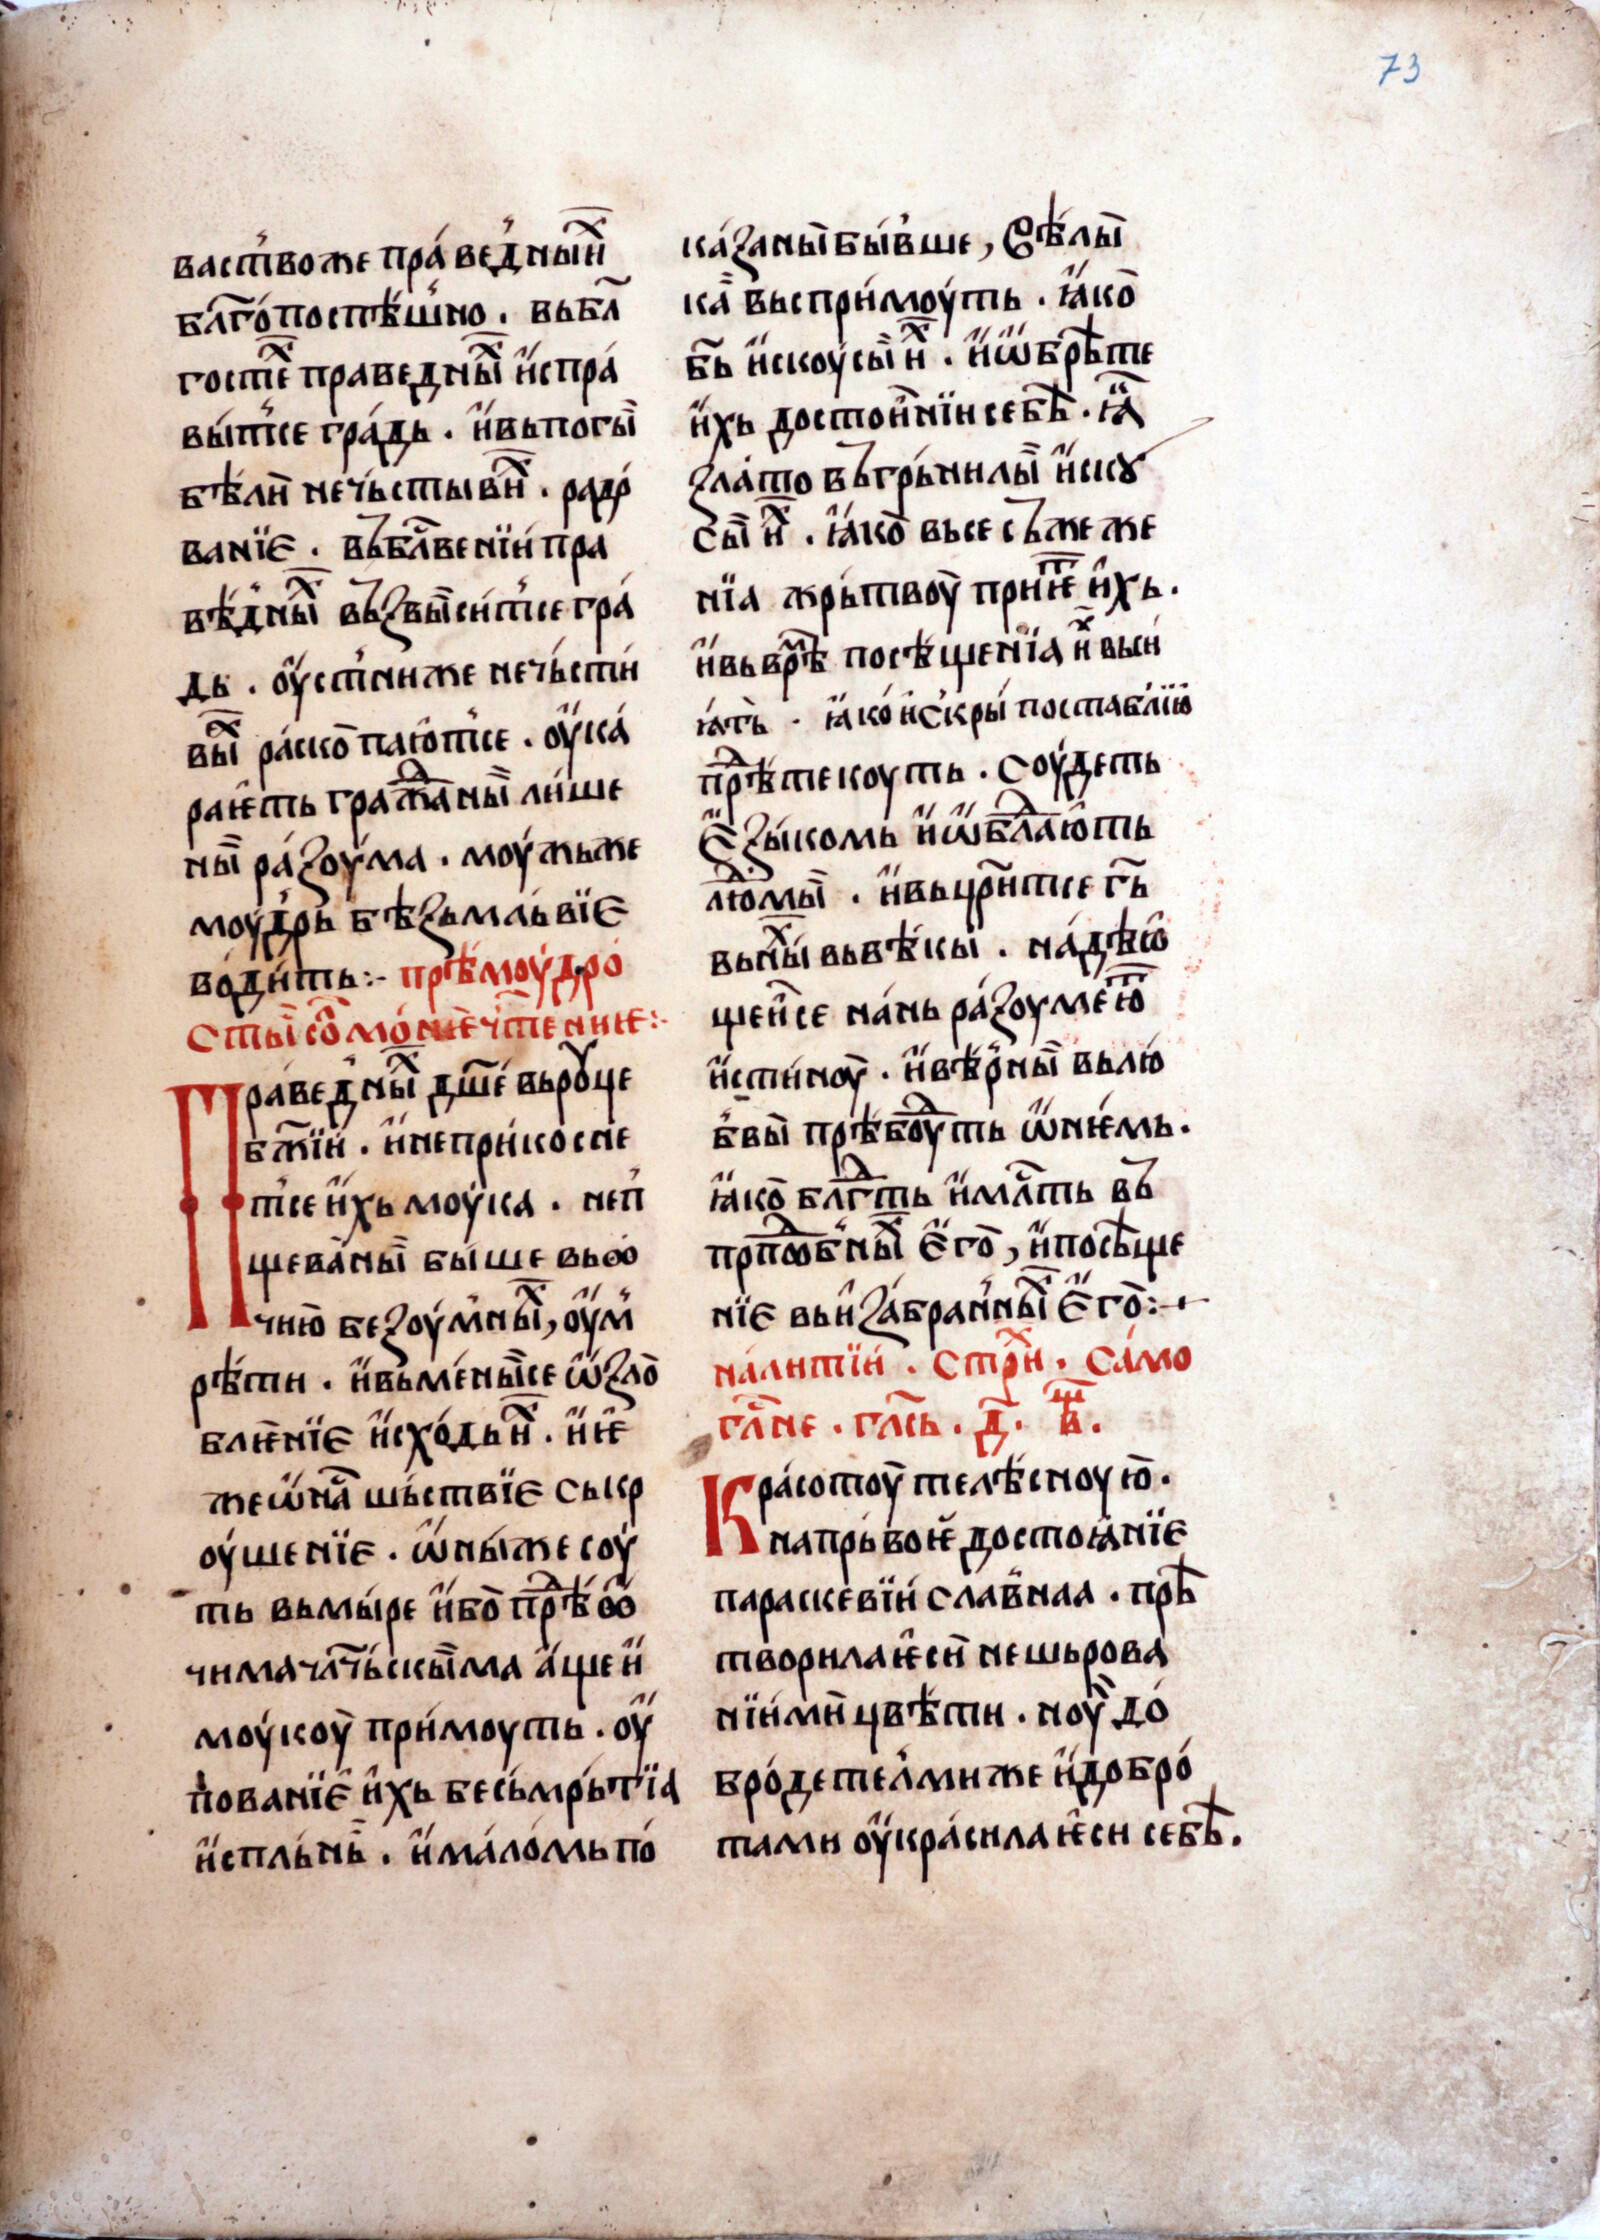 73
васт꙽воже пра́веⷣныи̇ⷯ
бл҃го́поспѣ́шно . вьбл҃
гостеⷯ праведныⷯ и҆спра́
ви́тсе гра́дь . и҆вьпогы̏
бѣ́ли нечь́стывиⷯ . радо́
ванїе . вь̾бл҃венїи́ пра
вѣ́дныⷯ вь̾звыси́тсе гра́
дь . оу҆стниже нечь́сти́
выⷯ ра́скопаю́тсе . оу҆ка́
раѥть гражⷣаны̏ ли́ше
ны̏ ра́зоу́ма . моу́жьже
моу́дрь бѣ́зьмль́вїе
во́ди́ть:- прѣ́моу́дро́
сты̏ со̑ломо́нѥ ч҃те́ниѥ:-
Пра́ведныⷯ дш҃е́ вьроу́це
бж҃їи́ . и҆непри́косне
тсе и҆́хь моу́ка . неп
щева́ны̏ бы́ше вьѻ
чию̏ безоу́мныⷯ, оу҆м
рѣ́ти . и҆вьме́ны̏се ѡ҆зло̏
блѥ́нїе и҆схо́дьиⷯ . и҆ѥ
жеѿна́ шь́ствїе ськр
оу́шенїе . ѡ҆ныже соу́
ть вьми́ре и҆бо̏ прѣⷣѻ
чимачл҃чь́скы̏ма а҆́ще и҆
моу́коу̏ при́моуть . оу҆
пованїе и҆́хь бесь́мрь́тїа
и҆спль́нь̏ . и҆ма́ло́мь по́
ка́заны̏ бы́вше, Ѕѣ́лы̏
ка̏ вьспри́моу́ть . ꙗ҆ко̏
б҃ь и҆скоу́сы̏ иⷯ . и҆ѡбрѣ́те
и҆́хь досто́и̇нїи себѣ̏ . ꙗ҆
зла́то вь̾грь́нилы̏ и҆скꙋ
сы̏ иⷯ . ꙗ҆ко̏ вьсесь̾жеже
нїа жрь́твоу̏ приѥⷮ и҆́хь .
и҆вьврⷨѣ посѣ́щенїа иⷯ вьси́
ꙗ́ть . ꙗ҆ко́ и҆скры́ поставлїю
прⷣѣ́текоуть . соу́деть
Е҆зы́комь и҆ѡблⷣаю́ть
люⷣмы̏ . и҆вьцр҃итсе г҃ь
вьниⷯ вьвѣ́кы . на́дѣ́ю
щеи̏се на́нь ра́зоумеюⷮ
и҆́стиноу̏ . и҆вѣ́рны̏ вьлю́
бвы̏ прѣ́боуⷣть ѡ҆нѥ́мь .
ꙗ҆ко̏ блгⷣть и҆мать вь̾
прпⷣѡбныⷯ е҆го̏, и҆посѣ́ще
нїе вьи҆за́бранныⷯ е҆го̏:-
на́литїи́ . стриⷯ . са́мо
гл҃не . гл҃сь . д҃ . т҃в .
Кра́сотоу̏ телѣ́сноую̏ .
напрь́воѥ̏ досто́ꙗнїе
параскевїи́ сла́вная . прѣ̾
творила ѥ҆си̏ нешьрова
нїими̏ цвѣ́ти . ноу̏ до́
бро́дете́лмиже и҆добро́
тами оу҆кра́сила ѥ҆си себѣ̏ .